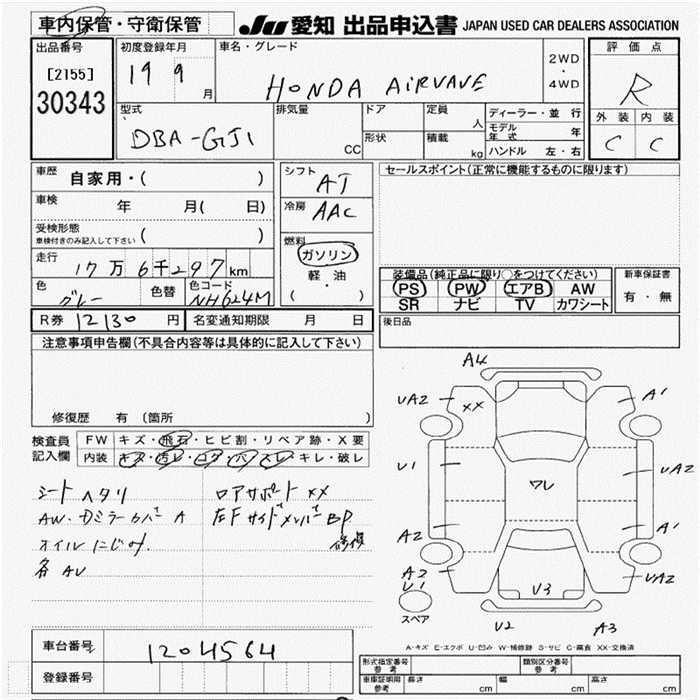 車内保管・守衛保管 JU 愛知 出品申込書 JAPAN USED CAR DEALERS ASSOCIATION
出品番号 初度登録年月 車名・グレード 評価点
[2155] 19 9 月 HONDA AIRVAVE 2WD・4WD R
30343
型式 排気量 ドア 定員 ディーラー・並行 外装 内装
DBA-GJ1 CC 形状 人 モデル年式 年 C C
積載 kg ハンドル 左・右
車歴 自家用・( ) シフト AT セールスポイント(正常に機能するものに限ります)
車検 年 月( 日) 冷房 AAC
受検形態 ( )
車検付きのみ記入して下さい
燃料 ガソリン
走行 17万6千297km 軽油
色 グレー 色替 色コード NH624M ( ・ )
装備品(純正品に限り○をつけてください) 新車保証書
PS PW エアB AW 有・無
SR ナビ TV カワシート
R券 12130 円 名変通知期限 月 日 後日品
注意事項申告欄(不具合内容等は具体的に記入して下さい)
修復歴 有 (箇所 )
検査員 FW キズ・飛石・ヒビ割・リペア跡・X要
記入欄 内装 キズ・汚レ・コゲ・穴・スレ・キレ・破レ
シートヘタリ ロアサポート XX
AW・ドミラーカバー A 左FサイドメンバーBP
オイルにじみ 修復
各AU
A4
UA2 XX A1
U1 ワレ UA2
A2 A1
A2 UA2
U1 U3
スペア U2 A3
A-キズ E-エクボ U-凹み W-補修跡 S-サビ C-腐食 XX-交換済
車台番号 1204564
登録番号
形式指定番号 参考 類別区分番号 参考
車庫証明用 参考 長さ cm 幅 cm 高さ cm